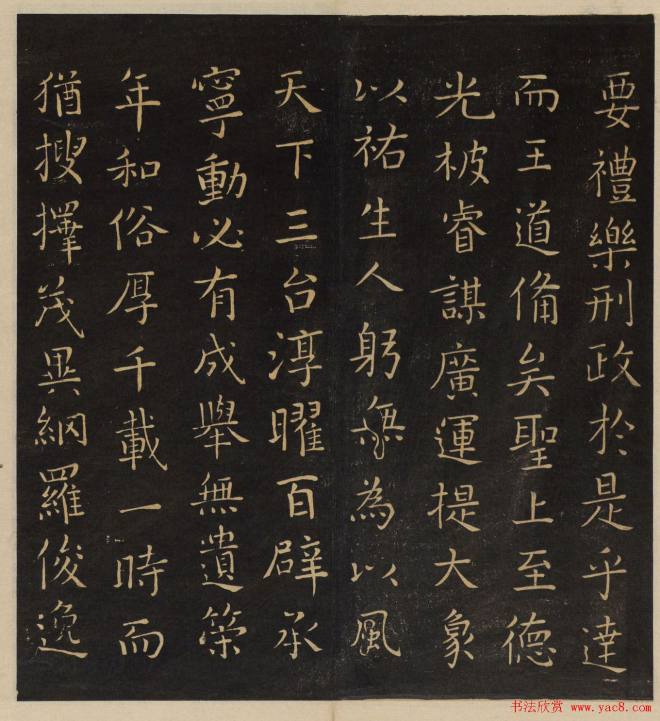 要禮樂刑政於是乎達
而王道備矣聖上至德
光被睿謀廣運提大象
以祐生人躬無為以風
天下三台淳曜百辟承
寧動必有成舉無遺策
年和俗厚千載一時而
猶搜擇茂異網羅俊逸
书法欣赏 www.yac8.com